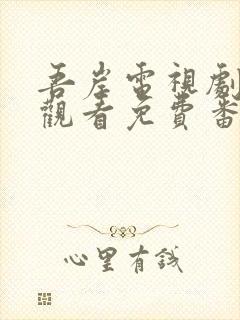 吾岸電視劇
觀看免費番
心里有錢